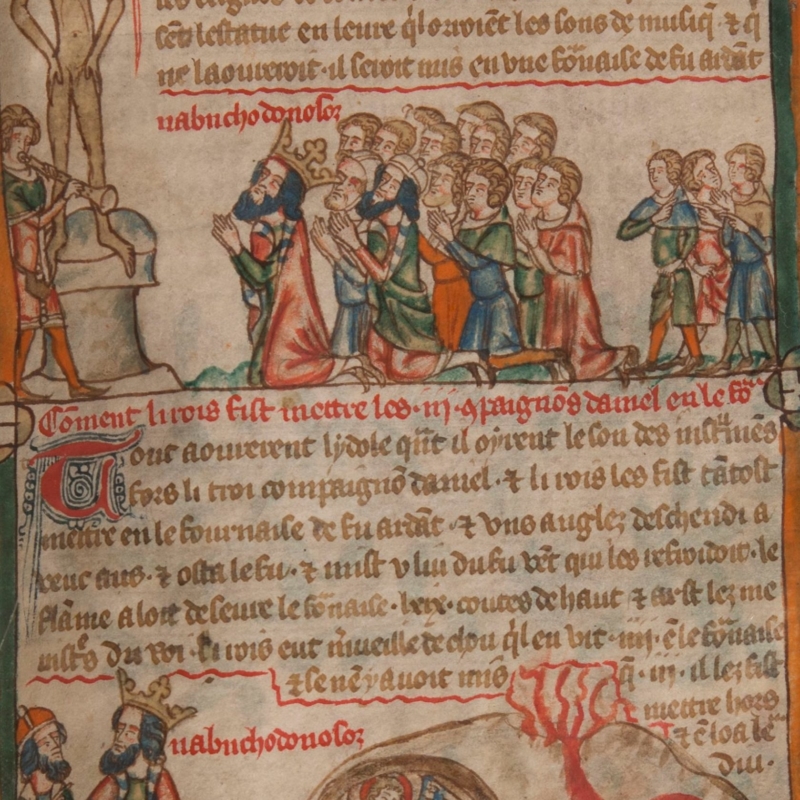 sen̄t lestatue en leure q̄l oroiēt les sons de musiq̄ ⁊ q̄
ne laoureroit · il seroit mis en vne fōnaise de fu ardāt
nabuchodonosor
Cōment li rois fist mettre les · iij · ꝯpaignōs daniel en le fōn
Tout aourerent lydole qn̄t il oyrent le son des instrumēs
fors li troi compaignō daniel · ⁊ li rois les fist tātost
mettre en le fournaise de fu ardāt · ⁊ vns anglez deschendi a
veuc aus · ⁊ osta le fu · ⁊ mist v liu du fu vēt qui les refroidoit · le
flāme aloit deseure le fōnaise · coutes de haut ⁊ arst lez me
nistres du roi · li rois eut m̄ueille de chou q̄l en vit · iiij · ē le fōnaise
⁊ se nē y auoit mis q̄ · iij · il les fist
mettre hors
⁊ ē loa le
diu ·
nabuchodonosor